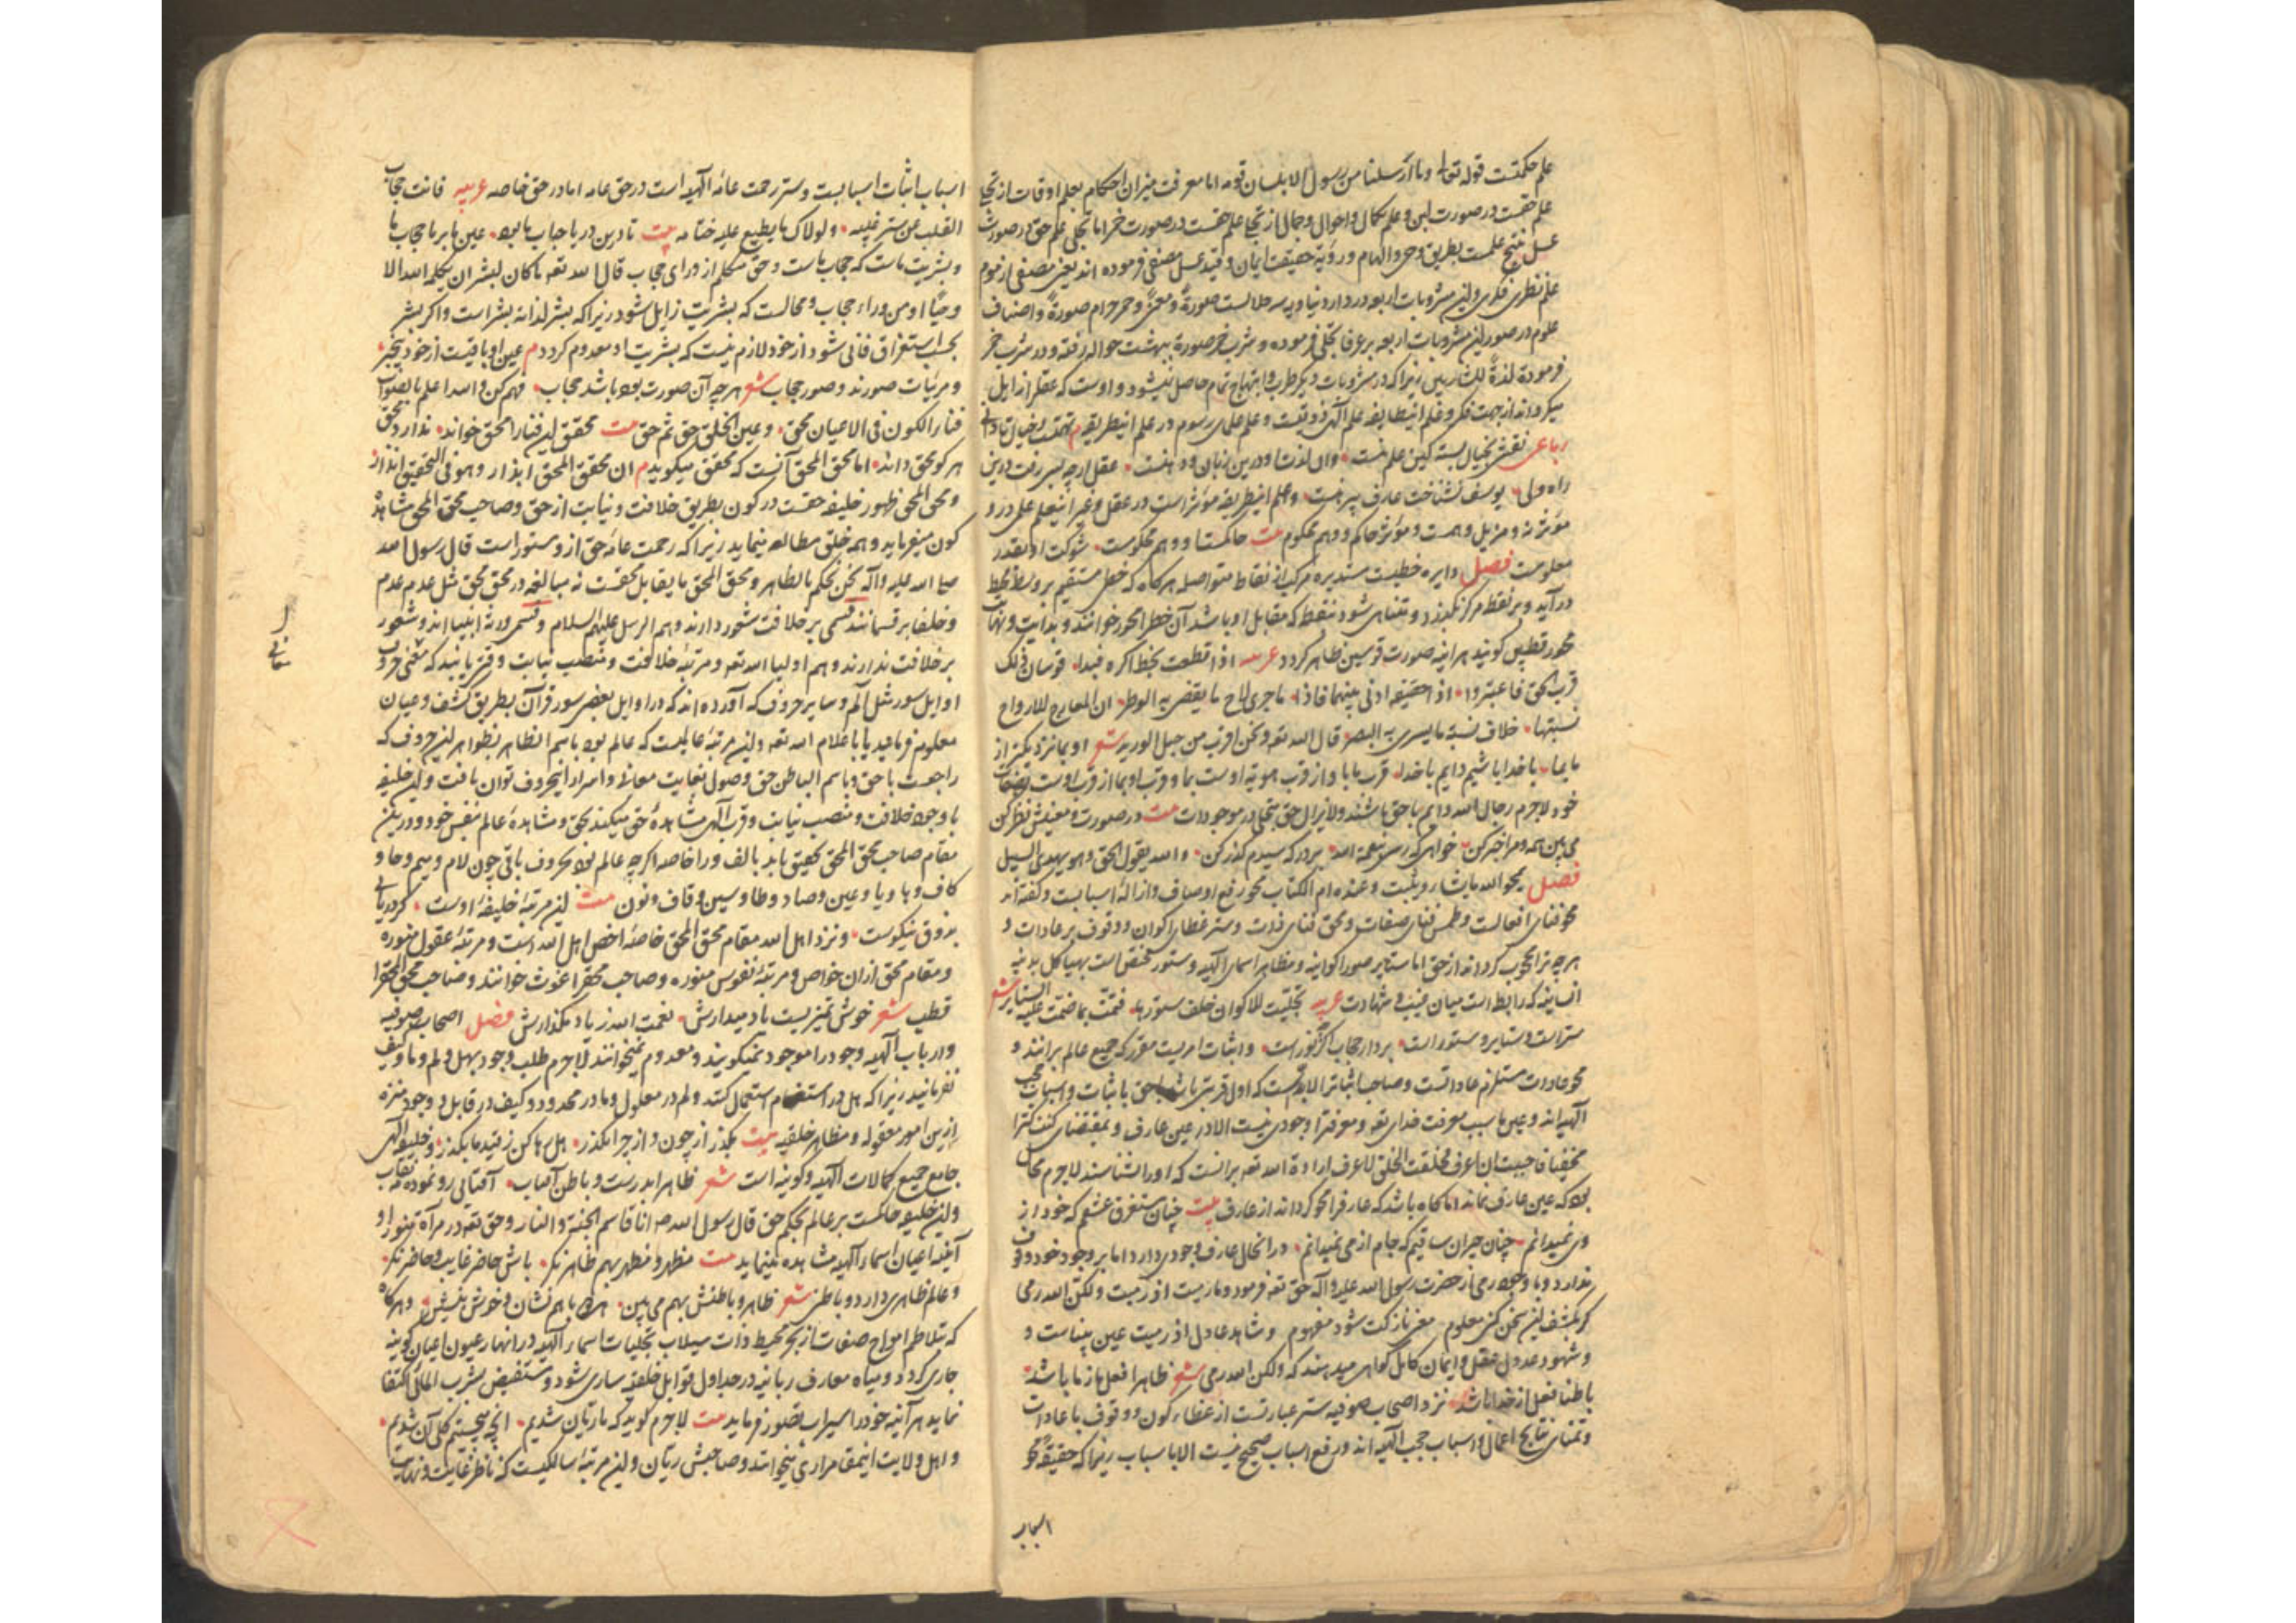 علم حکمتست قوله تعالی وما ارسلنا من رسول الا بلسان قومه اما معرفت میزان احکام بعلم اوقات از تجلی
علم حقست در صورت لبن و علم بکمال واحوال و جمال از تجلی علم حقست در صورت خمر اما تجلی علم حق در صورت
عسل نتیج علمست بطریق وحی والهام و رؤیة حقیقت ایمان و قید عسل مصفی فرموده اند یعنی مصفی از موم
علم نظری فکری واین مشروبات اربعه در دار دنیا و به سه حلالست صورةً و معنیً و خمر حرام صورةً واصناف
علوم در صور این مشروبات اربعه بر عرفا تجلی فرموده و شرب خمر صورة ببهشت حواله رفته و در شرب خمر
فرموده لذةً للشاربین زیرا که در مشروبات دیگر طرب وابتهاج تمام حاصل نمیشود و اوست که عقل زایل
میکرداند از جهت فکر و علم این طایفه علم الهی ذوقیست و علم علمای رسوم در علم این طریقه م
رباعی نقش بخیال بسته کین علم منست وان لذت او درین زبان ودهنست عقل ارچه بسی رفت درین
راه ولی یوسف نشناخت عارف پیرهنست و علم این طریقه مؤثر است در عقل و غیر این علم علی در و
مؤثر نه و مزیل وهمست و مؤثر حاکم و وهم محکوم بیت حاکمست او و وهم محکومست شوکت او بقدر
معلومست فصل دایره خطیست مستدیره مرکب از نقاط متواصله هرگاه که خطی مستقیم بر وسط محیط
درآید و بر نقطه مرکز بگذرد و متناهی شود بنقطه که مقابل او باشد آن خط را محور خوانند و بدایت و نهایت
محور قطبین کویند هر اینه صورت قوسین ظاهر کردد عربیه اذا قطعت بخط اکره فبدا قوسان ذلک
قرب الحق فاعتبروا اذا حقیقه ادنی بینهما فاذا ما جری لاح ما یقضی به الوطر ان المعارج للارواح
نسبتها خلاف نسبة ما یسری به البصر قال الله تعه ونحن اقرب من حبل الورید شعر او بما نزدیکتر از
ما بما با خدا باشیم دایم با خدا قرب ما با او از قرب هویة اوست بما و قرب او بما از قرب اوست
خود لاجرم رجال الله دایم با حق باشند ولا یزال حق متجلی در موجودات بیت در صورت و معنیش نظر کن
می بین همه و مرا خبر کن خواهی که رسی بنعمة الله بر درکه سیدم کذر کن والله یقول الحق وهو یهدی السبیل
فصل یمحو الله ما یشاء ویثبت وعنده ام الکتاب محو رفع اوصاف وازالهٔ اسبابست وکفته اند
محو فنای افعالست و طمس فنای صفات و محق فنای ذات و ستر غطای اکوان و وقوف بر عادات و
هرچه ترا محجوب کرداند از حق اما ستایر صور اکوانیه و مظاهر اسماء الهیه و ستور مختص است بهیاکل بدنیه
انسانیه که رابط است میان غیب و شهادت عربیه تجلیّت للاکوان خلف ستورها فنمّت بما ضمّت علیه الستایر شعر
ستر است و ستایر و ستور است بردار حجاب اکر نه نور است واثبات امریست مقرر که جمیع عالم برانند و
محو عادات مستلزم عاداتست و صاحب اثبات را لابدست که اول قربتی باشد با حق باثبات و اسباب حجب
الهیه اند و عین ما سبب معرفت خدای تعه و معرفت را وجودی نیست الا در عین عارف و بمقتضای کنت کنزا
مخفیا فاحببت ان اعرف فخلقت الخلق لاعرف ارادة الله تعه برانست که او را شناسند لاجرم محال
بود که عین عارف نماند اما کاه باشد که عارف را محو کرداند از عارف بیت چنان مستغرق عشقم که خود از
وی نمیدانم چنان حیران ساقیم که جام از می نمیدانم در انحال عارف وجودی دارد اما بر وجود خود وقوف
ندارد و با وجود رمی از حضرت رسول الله علیه واله حق تعه فرمود وما رمیت اذ رمیت ولکن الله رمی
کر بکشف این سخن کنی معلوم مغز نازکت شود مفهوم و شاهد عادل اذ رمیت عین بیناست و
و شهود عدول عقل و ایمان کامل کواهی میدهند که ولکن الله رمی شعر ظاهرا فعل ما ز ما باشد
باطنا فعل از خدا باشد نزد اصحاب صوفیه ستر عبارتست از غطاء کون و وقوف با عادات
و تمنای نتایج اعمال و اسباب حجب الهیه اند و رفع اسباب صحیح نیست الا باسباب زیرا که حقیقة محو
اسباب
اسباب اثبات اسبابست و ستر رحمت عامهٔ الهیه است در حق عامه اما در حق خاصه عربیه فانت حجاب
القلب عن ستر غیبه ولولاک ما یطبع علیه ختامه بیت تا درین دریا حباب ما بود عین ما بر ما حجاب ما
و بشریت ماست که حجاب ماست و حق متکلم از ورای حجاب قال الله تعه ما کان لبشر ان یکلمه الله الا
وحیًا او من وراء حجاب و محالست که بشریت زایل شود زیرا که بشر لذاته بشر است و اکر بشر
بحسب استغراق فانی شود از خود لازم نیست که بشریت او معدوم کردد م عین او باقیست از خود بیخبر
و مرئیات صورند و صور حجاب شعر هر چه آن صورت بود باشد حجاب فهم کن والله اعلم بالصواب
فناء الکون فی الاعیان محق وعین الخلق حق ثم حق بیت محقق این فنا را محق خواند ندارد محق
هر کو محق داند اما محق المحق آنست که محقق میکوید م ان محقق المحق ابدار وهو فی التحقیق
و محق المحق ظهور خلیفه حقست در کون بطریق خلافت و نیابت از حق و صاحب محق المحق مشاهده
کون میفرماید و همه خلق مطالعه مینماید زیرا که رحمت عامهٔ حق از و مستور است قال رسول الله
صلی الله علیه وآله نحن نحکم بالظاهر و محق المحق ما یقابل محقست نه مبالغه در محق محق مثل عدم عدم
و خلفا بر قسمانند قسمی بر خلافت شعور دارند و هم الرسل علیهم السلام و قسمی ورثهٔ انبیا اند و شعور
بر خلافت ندارند و هم اولیا الله تعه و مرتبهٔ خلافت و منصب نیابت وقتی یابند که معنی حروف
اوایل سور مثل الم و سایر حروف که آورده اند که در اوایل بعضی سور قرآن بطریق کشف و عیان
معلوم فرماید یا باعلام الله تعه واین مرتبهٔ عالیست که عالم بود باسم الظاهر بظواهر این حروف که
راجعست با حق و باسم الباطن حق وصول بغایت معانی و اسرار این حروف توان یافت واین خلیفه
با وجود خلافت و منصب نیابت و قرب الهی مشاهدهٔ حق میکند بحق و مشاهدهٔ عالم بنفس خود و درین
مقام صاحب محق المحق تحقیق یابد بالف و را خاصه اکرچه عالم بود بحروف باقی چون لام و میم و حا و
کاف و ها و یا و عین و صاد و طا و سین و قاف و نون بیت این مرتبهٔ خلیفهٔ اوست کر دریابی
بذوق نیکوست و نزد اهل الله مقام محق المحق خاصهٔ اخص اهل الله است و مرتبهٔ عقول منوره
و مقام محق ازان خواص و مرتبهٔ نفوس منوره و صاحب محق را غوث خوانند و صاحب محق المحق را
قطب شعر خوش تمیزیست یاد میدارش نعمت الله ز یاد مکذارش فصل اصحاب صوفیه
و ارباب الهیه وجود را موجود نمیکویند و معدوم نمیخوانند لاجرم طلب وجود بهل و لم و ما و کیف
نفرمانید زیرا که هل در استفهام استعمال کنند و لم در معلول و ما در محدود و کیف در قابل و وجود منزه
ازین امور معقوله و مظاهر خلقیه بیت بکذر از چون و از چرا بکذر هل رها کن ز قید ما بکذر و خلیفه الهی
جامع جمیع کمالات الهیه و کونیه است شعر ظاهرا بدرست و باطن آفتاب آفتابی رو نموده مه نقاب
واین خلیفه حاکمست بر عالم بحکم حق قال رسول الله صه انا قاسم الجنة والنار و حق تعه در مرآة منور او
آینهٔ اعیان اسماء الهیه مشاهده مینماید بیت منظر و منظر بهم ظاهر نکر باش حاضر غایب و حاضر نکر
و عالم ظاهری دارد و باطنی شعر ظاهر و باطنش بهم می بین هر دو با هم نشان و خوش بنشین و هرکاه
که تلاطم امواج صفات از بحر محیط ذات سیلاب تجلیات اسماء الهیه در انهار عیون اعیان کونیه
جاری کردد و میاه معارف ربانیه در جداول قوابل خلقیه ساری شود و مستفیض بشرب المالی اکتفا
نماید هر آینه خود را سیراب تصور فرماید بیت لاجرم کوید که ما ریان شدیم انچه میجستیم کلی آن شدیم
و اهل ولایت این مقام را ری میخوانند و صاحبش ریان واین مرتبهٔ سالکیست که ناظر غایت و نهایت